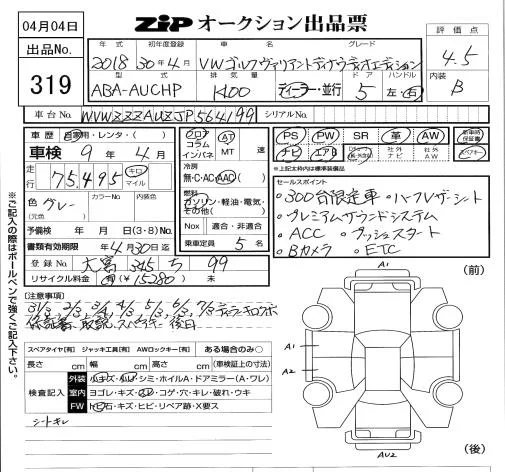 04月04日
ZIP オークション出品票
出品No.
319
年式 初年度登録 車名 グレード
2018 30年4月 VWゴルフヴァリアントテックエディション
型式 排気量 ドア ハンドル
ABA-AUCHP 1400 ディーラー・並行 5 左・右
評価点
4.5
内装
B
車台No. WVWZZZAUZJP564199 シリアルNo.
車歴 自家用・レンタ・( )
車検 9年4月
走行 75,495 キロ マイル
色 グレー カラーNo. 内装色
(元色)
予備検 年 月 日(3・8)No.
書類有効期限 年4月30日迄
登録No. 大宮 345 ち 99
リサイクル料金 (¥15280) 未
フロア
コラム
インパネ
AT
MT
速
冷房
無・C・AC・AAC( )
燃料
ガソリン・軽油・電気・
その他( )
Nox 適合・非適合
乗車定員 5名
PS PW SR 革 AW 新車時保証書
ナビ エアB 社外ナビ 社外AW スペアキー
*上記太枠内は標準装備品
セールスポイント
・300台限定車 ・ハーフレザーシート
・プレミアムサウンドシステム
・ACC ・プッシュスタート
・Bカメラ ・ETC
[注意事項]
保証書、取説、スペアキー後日
スペアタイヤ[有] ジャッキ工具[有] AWロックキー[有] ある場合のみ○
長さ cm 幅 cm 高さ cm (車検証上の寸法)
検査記入
外装 小キズ・凹・シミ・ホイルA・ドアミラー(A・ワレ)
室内 ヨゴレ・キズ・スレ・コゲ・穴・キレ・破れ・ウキ
FW 飛石・キズ・ヒビ・リペア跡・X要ス
シートキレ
※ご記入の際はボールペンで強くご記入下さい。
A1
(前)
A1
A2
AU2
(後)